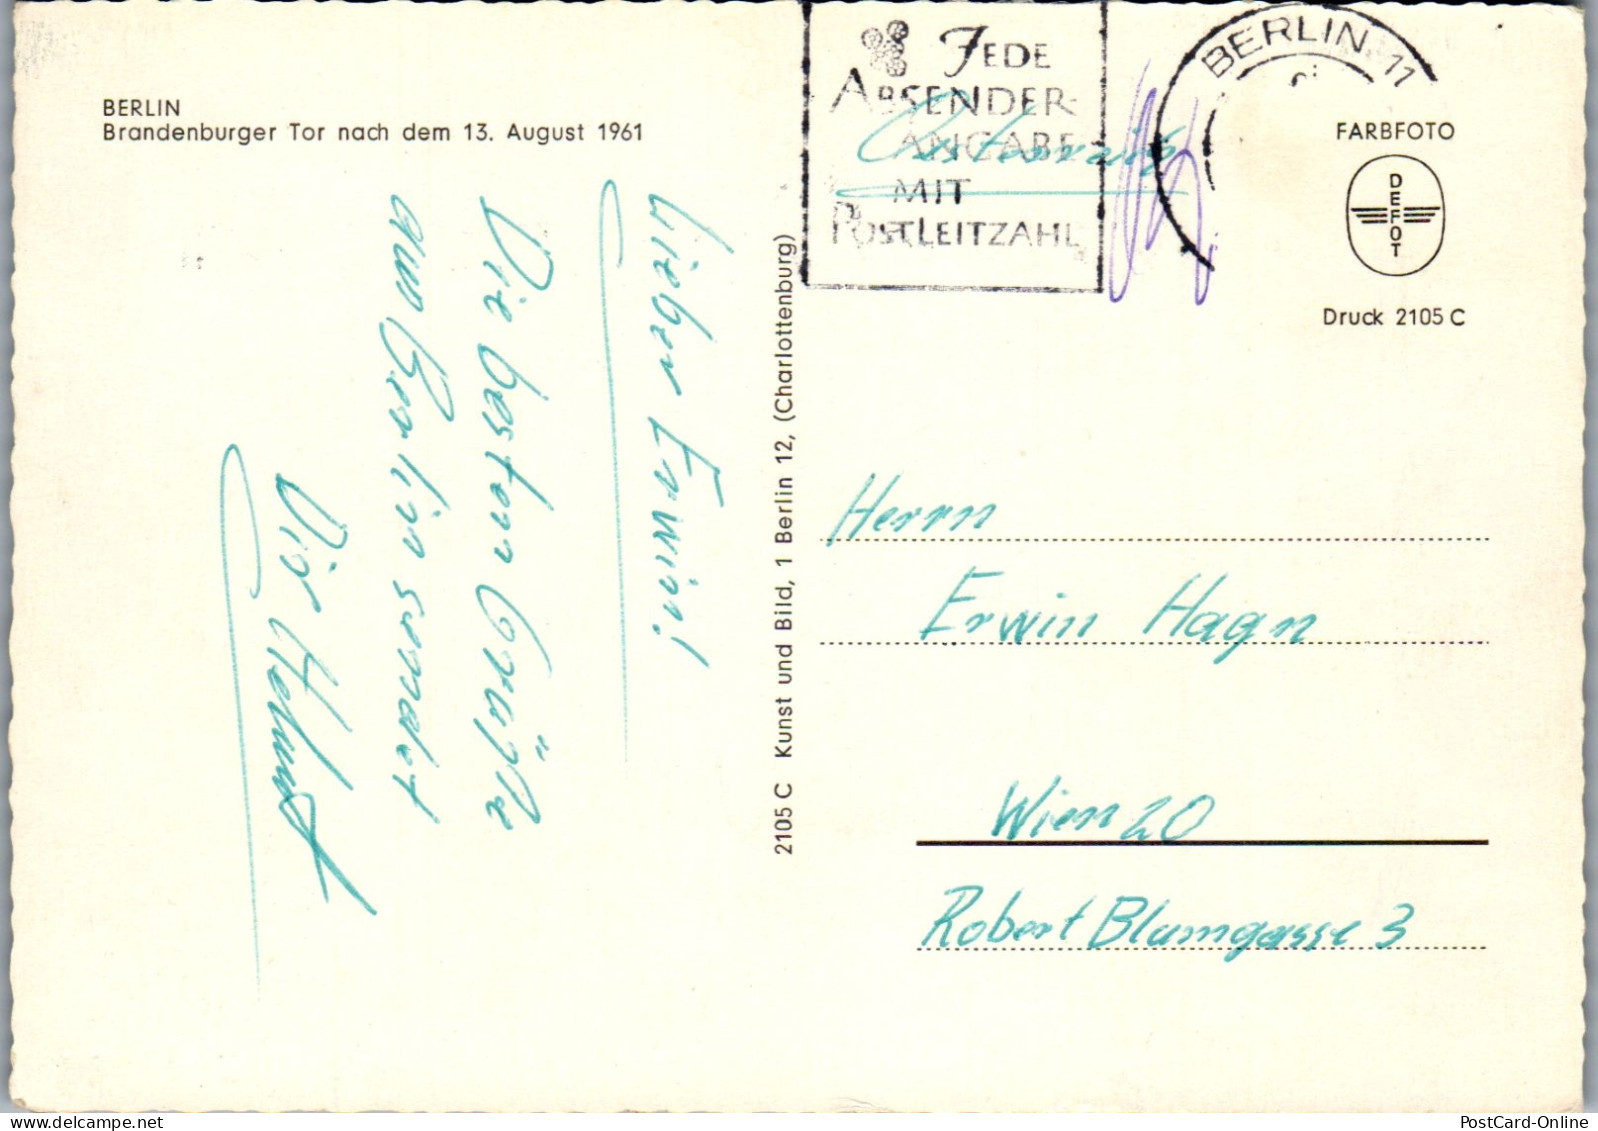 BERLIN
Brandenburger Tor nach dem 13. August 1961
Lieber Erwin!
Die besten Grüße
aus Berlin sendet
Dir Helmut
2105 C Kunst und Bild, 1 Berlin 12, (Charlottenburg)
JEDE
ABSENDER-
ANGABE
MIT
POSTLEITZAHL
BERLIN 11
Österreich
FARBFOTO
DEFOT
Druck 2105 C
Herrn
Erwin Hagn
Wien 20
Robert Blumgasse 3
PostCard-Online